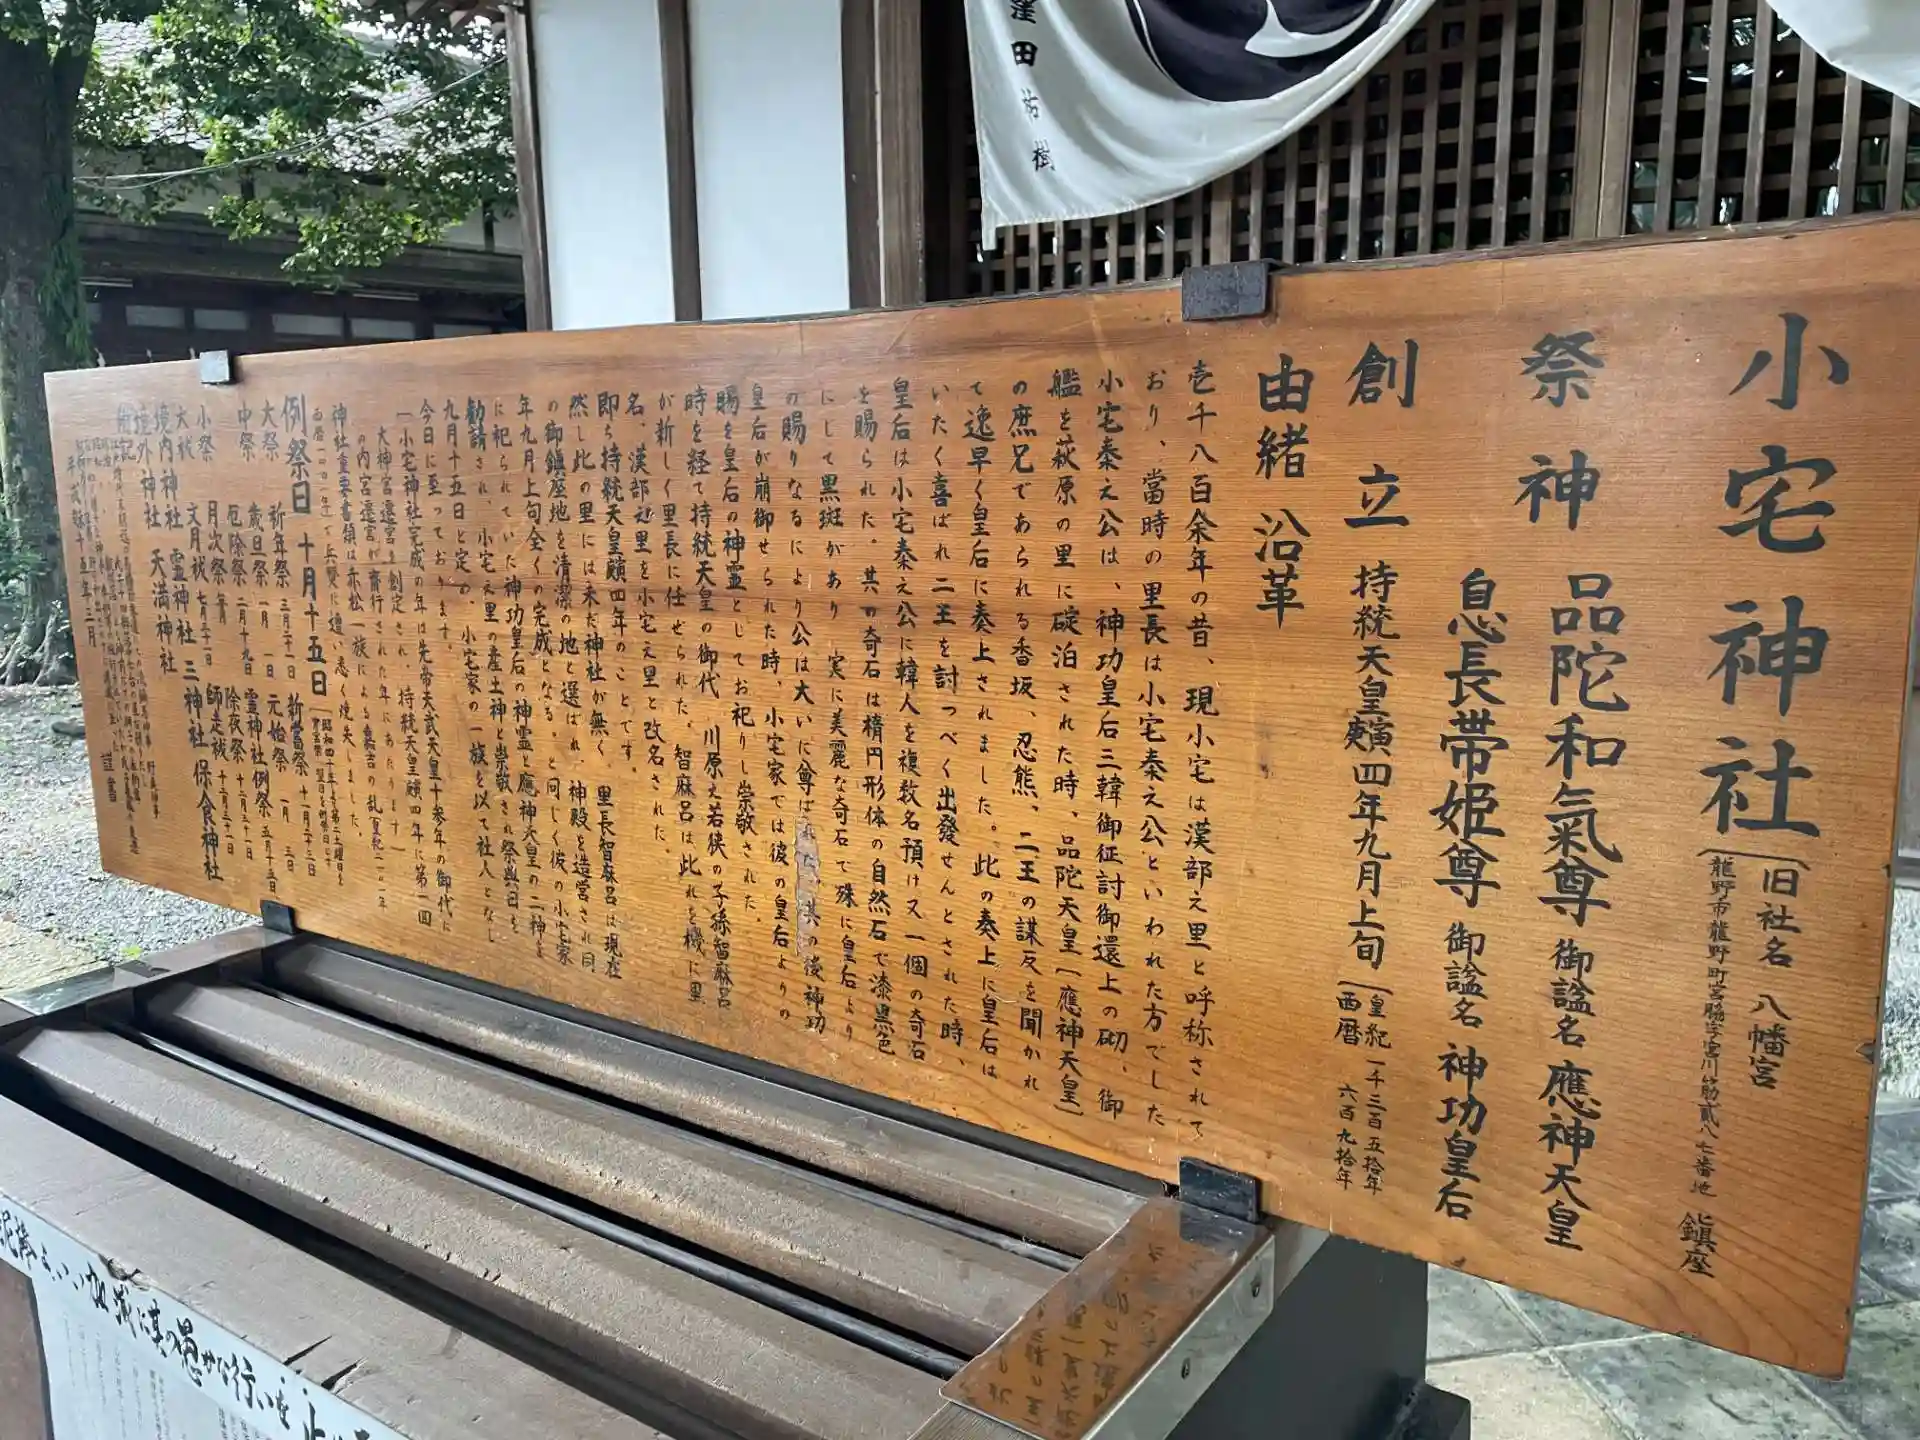 小宅神社
旧社名 八幡宮
龍野市龍野町宮脇字宮川筋貳八七番地
鎮座
祭神 品陀和氣尊 御諡名 應神天皇
息長帯姫尊 御諡名 神功皇后
創立 持統天皇庚寅四年九月上旬
皇紀 一千三百五拾年
西暦 六百九拾年
由緒 沿革
壱千八百余年の昔、現小宅は漢部之里と呼称されて
おり、當時の里長は小宅秦之公といわれた方でした
小宅秦之公は、神功皇后三韓御征討御還上の砌、御
艦を萩原の里に碇泊された時、品陀天皇(應神天皇)
の庶兄であられる香坂、忍熊、二王の謀反を聞かれ
て逸早く皇后に奏上されました。此の奏上に皇后は
いたく喜ばれ二王を討つべく出發せんとされた時、
皇后は小宅秦之公に韓人を複数名預け又一個の奇石
を賜られた。其の奇石は楕円形体の自然石で漆黒色
にして黒斑があり 実に美麗な奇石で殊に皇后より
の賜りなるにより公は大いに尊ばれた。其の後神功
皇后が崩御せられた時、小宅家では彼の皇后よりの
賜を皇后の神霊としてお祀りし崇敬された。
時を経て持統天皇の御代 川原之若狭の子孫智麻呂
が新しく里長に任せられた。智麻呂は此れを機に里
名、漢部之里を小宅之里と改名された。
即ち持統天皇庚寅四年のことです。
然し此の里には未だ神社が無く、里長智麻呂は現在
の御鎮座地を清潔の地と選ばれ、神殿を造営され同
年九月上旬全くの完成となる。と同じく彼の小宅家
に祀られていた神功皇后の神霊と應神天皇の二神を
勧請され、小宅之里の産土神と崇敬され祭典日を
九月十五日と定め、小宅家の一族を以て社人となし
今日に至っております。
一小宅神社完成の年は先帝天武天皇十参年の御代に
大神宮遷宮を創定され、持統天皇庚寅四年に第一回
の内宮遷宮が斎行された年にあたります一
神社重要書類は赤松一族による嘉吉の乱(皇紀二一〇一年
西暦一四四一年)で兵燹に遭い悉く焼失しました。
例祭日 十月十五日
大祭 新年祭 三月二十一日 新嘗祭 十一月二十三日
中祭 歳旦祭 一月一日 元始祭 一月三日
厄除祭 二月十九日 霊神社例祭 五月十五日
小祭 月次祭 除夜祭 十二月三十一日
大祓 文月祓 七月三十一日 師走祓 十二月三十一日
境内神社 霊神社 三神社 保食神社
境外神社 天満神社
附記
平成十五年三月 謹書
窪田
樹